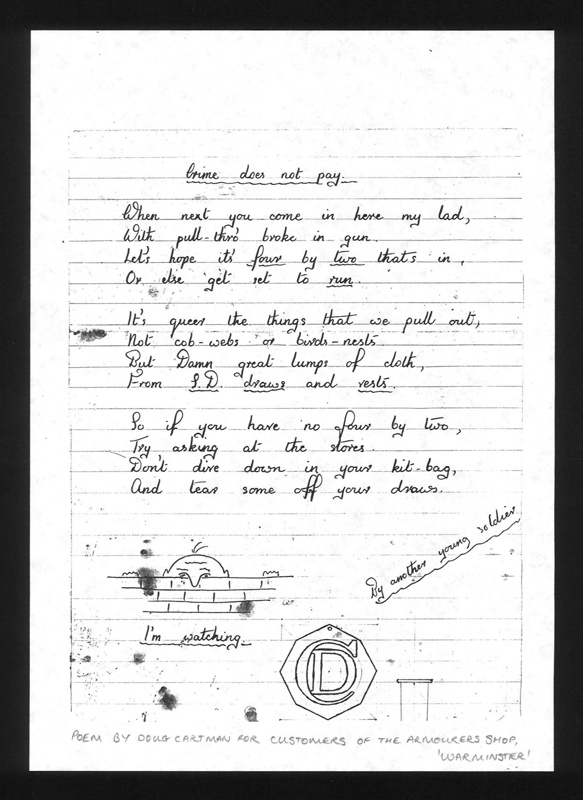 Crime does not pay.
When next you come in here my lad,
With pull-thro' broke in gun.
Let's hope it's four by two that's in,
Or else get set to run.
It's queer the things that we pull out,
Not cob-webs or birds-nests
But Damn great lumps of cloth,
From S.D. draws and vests.
So if you have no four by two,
Try asking at the stores.
Don't dive down in your kit-bag,
And tear some off your draws.
By another young soldier
I'm watching.
CD
POEM BY DOUG CARTMAN FOR CUSTOMERS OF THE ARMOURERS SHOP,
'WARMINSTER'